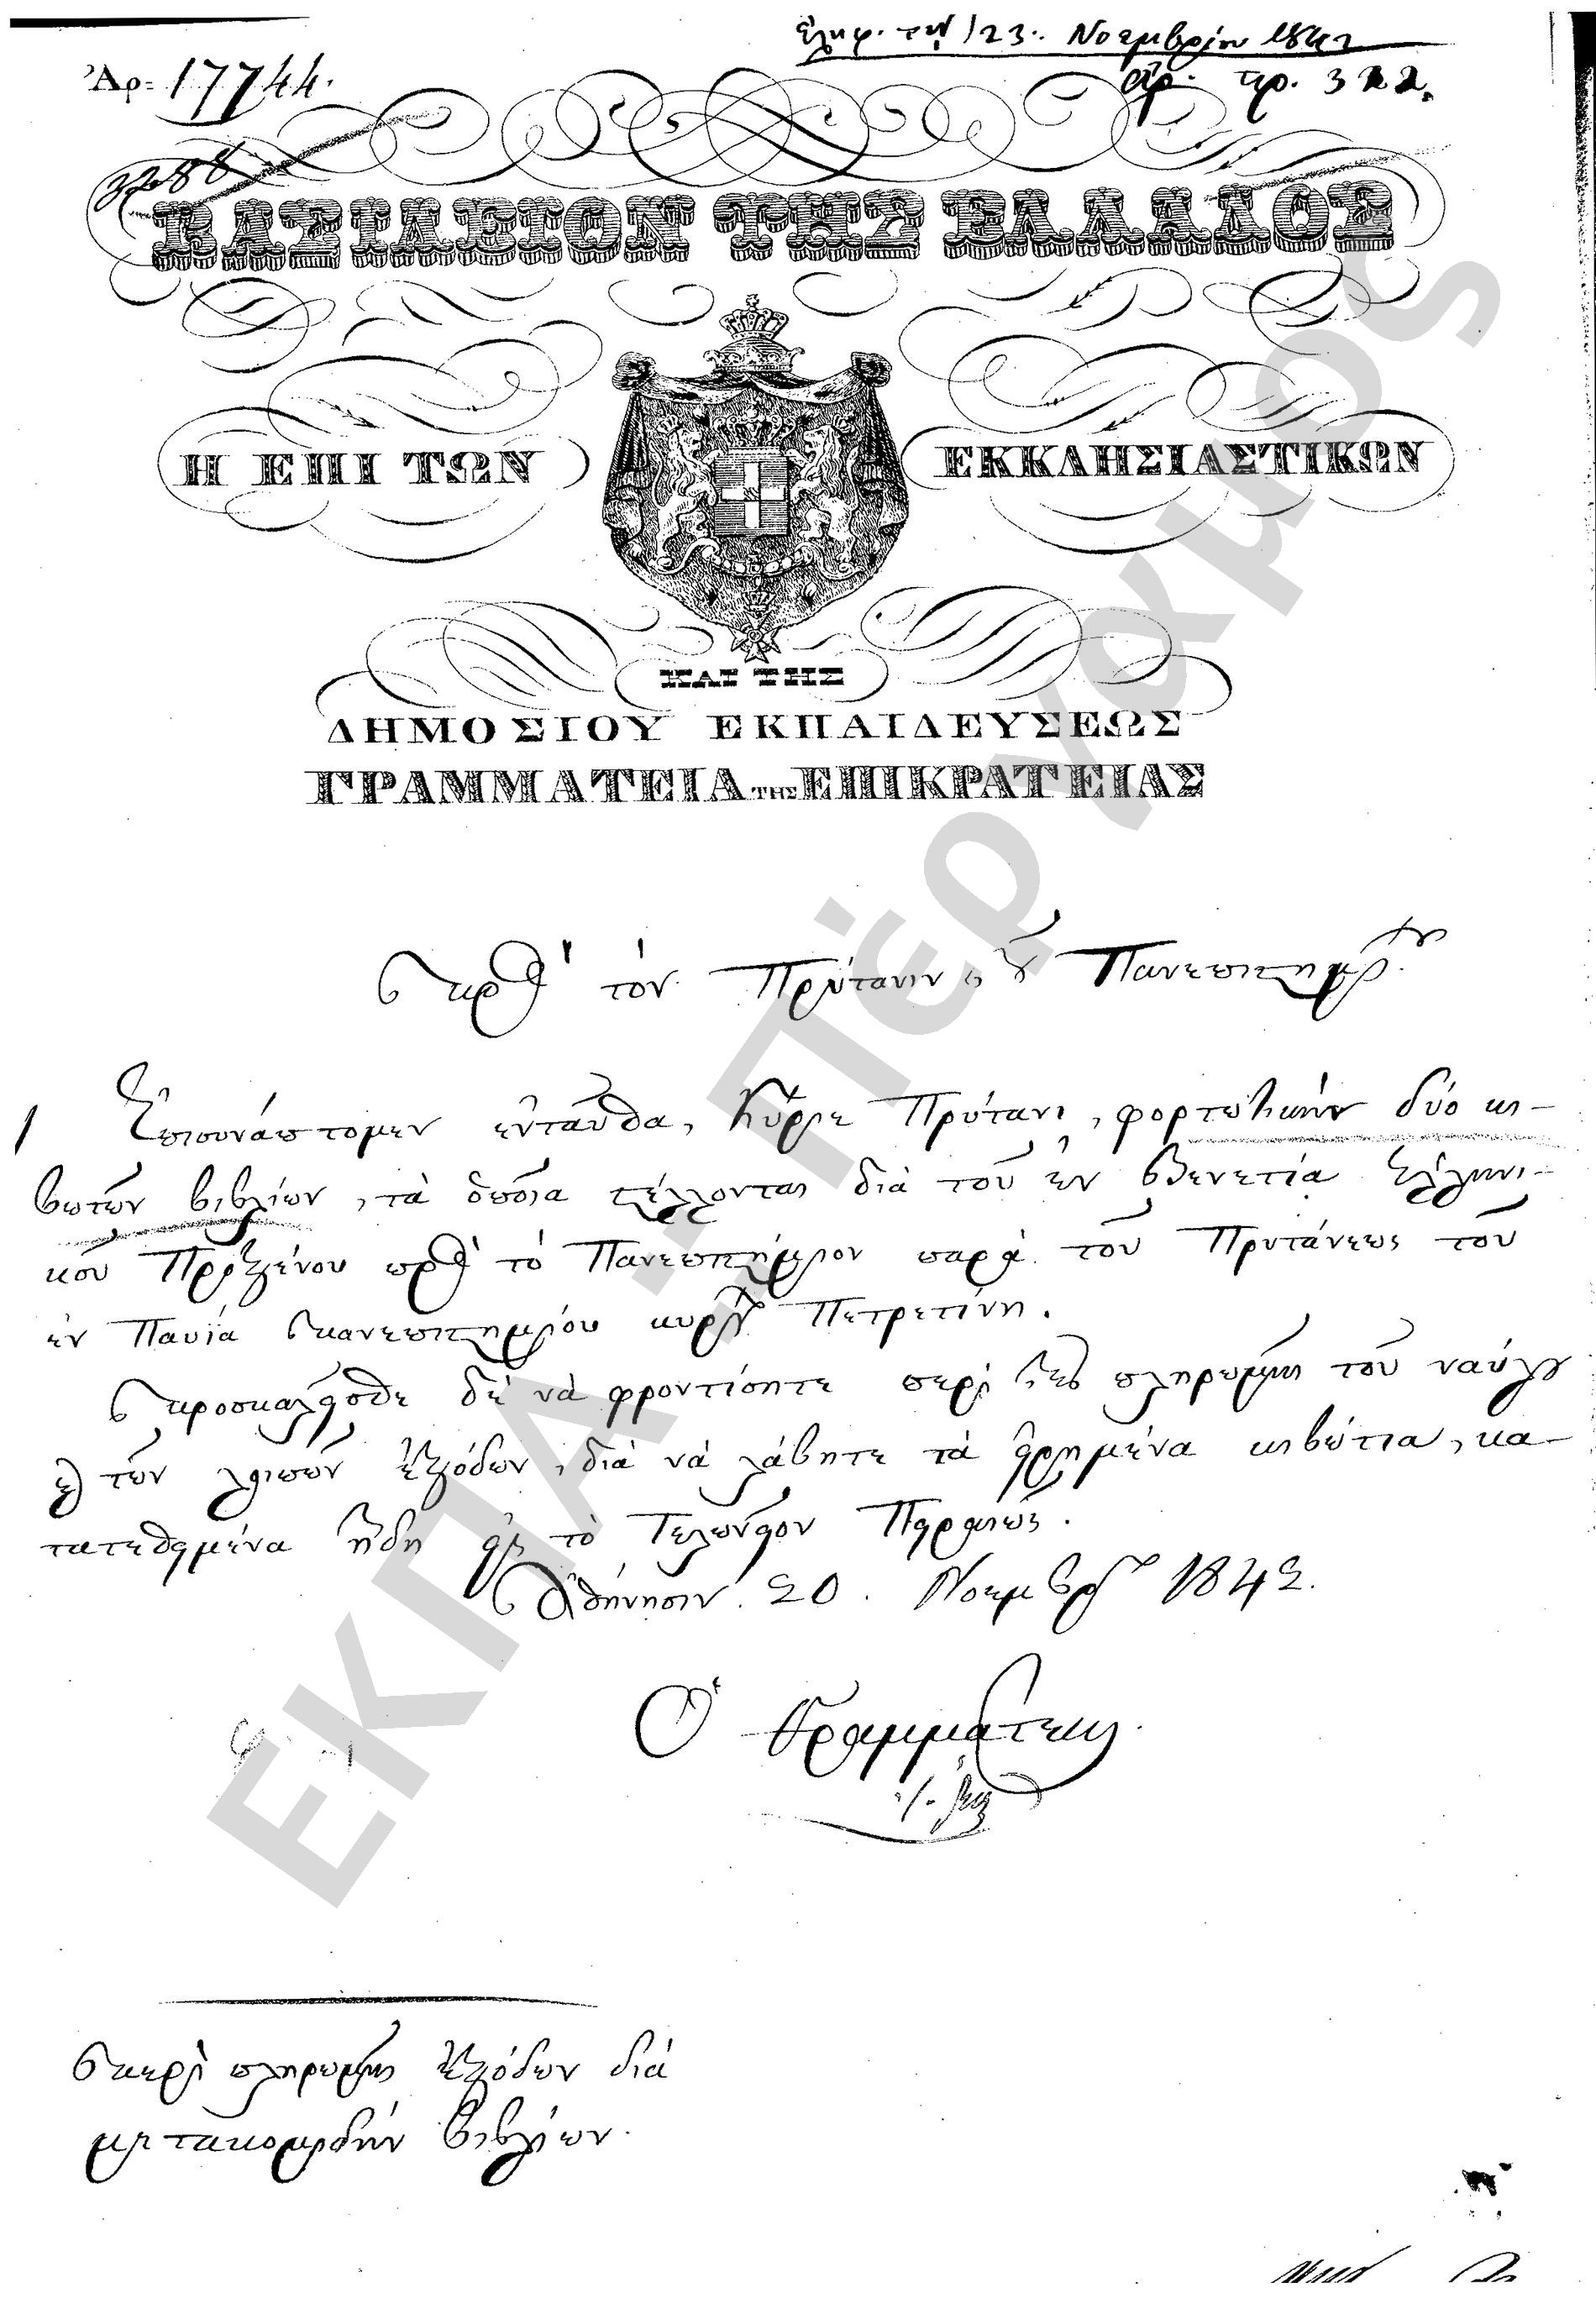 ἐλήφ. τὴν 23. Νοεμβρίου 1842
ἀρ. πρ. 322.
Ἀρ= 17744.
3288
ΒΑΣΙΛΕΙΟΝ ΤΗΣ ΕΛΛΑΔΟΣ
Η ΕΠΙ ΤΩΝ ΕΚΚΛΗΣΙΑΣΤΙΚΩΝ
ΚΑΙ ΤΗΣ
ΔΗΜΟΣΙΟΥ ΕΚΠΑΙΔΕΥΣΕΩΣ
ΓΡΑΜΜΑΤΕΙΑ ΤΗΣ ΕΠΙΚΡΑΤΕΙΑΣ
Πρὸς τὸν Πρύτανιν τοῦ Πανεπιστημίου
1 Ἐπισυνάπτομεν ἐνταῦθα, Κύριε Πρύτανι, φορτωτικὴν δύο κι-
βωτίων βιβλίων, τὰ ὁποῖα στέλλονται διὰ τοῦ ἐν Βενετίᾳ Ἑλληνι-
κοῦ Προξένου πρὸς τὸ Πανεπιστήμιον παρὰ τοῦ Πρυτάνεως τοῦ
ἐν Παυίᾳ Πανεπιστημίου κυρίου Πετρετίνη.
Προσκαλεῖσθε δὲ νὰ φροντίσητε περὶ τῆς πληρωμῆς τοῦ ναύλου
καὶ τῶν λοιπῶν ἐξόδων, διὰ νὰ λάβητε τὰ εἰρημένα κιβώτια, κα-
τατεθειμένα ἤδη εἰς τὸ Τελωνεῖον Πειραιῶς.
Ἀθήνησιν. 20. Νοεμβρίου 1842.
Ὁ Γραμματεὺς
Περὶ πληρωμῆς ἐξόδων διὰ
μετακομιδὴν βιβλίων.
ΕΚΠΑ_Πέργαμος